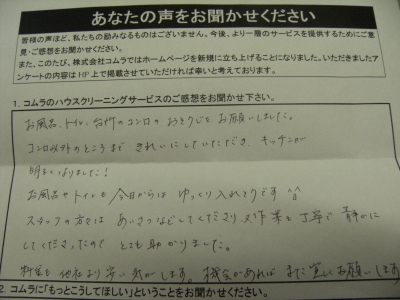 あなたの声をお聞かせください
皆様の声ほど、私たちの励みなるものはございません。今後、より一層のサービスを提供するためにご意
見・ご感想をお聞かせください。
また、このたび、株式会社コムラではホームページを新規に立ち上げることになりました。いただきましたア
ンケートの内容はHP上で掲載させていただければ幸いと考えております。
1. コムラのハウスクリーニングサービスのご感想をお聞かせ下さい。
お風呂、トイレ、台所のコンロのおそうじをお願いしました。
コンロ以外のところまできれいにしていただき、キッチンが
明るくなりました!
お風呂やトイレも今日からはゆっくり入れそうです^^
スタッフの方々はあいさつなどしてくださり又作業も丁寧で静かに
してくださったのでとても助かりました。
料金も他社より安い気がします。機会があればまた宜しくお願いします
2. コムラに「もっとこうしてほしい」ということをお聞かせください。